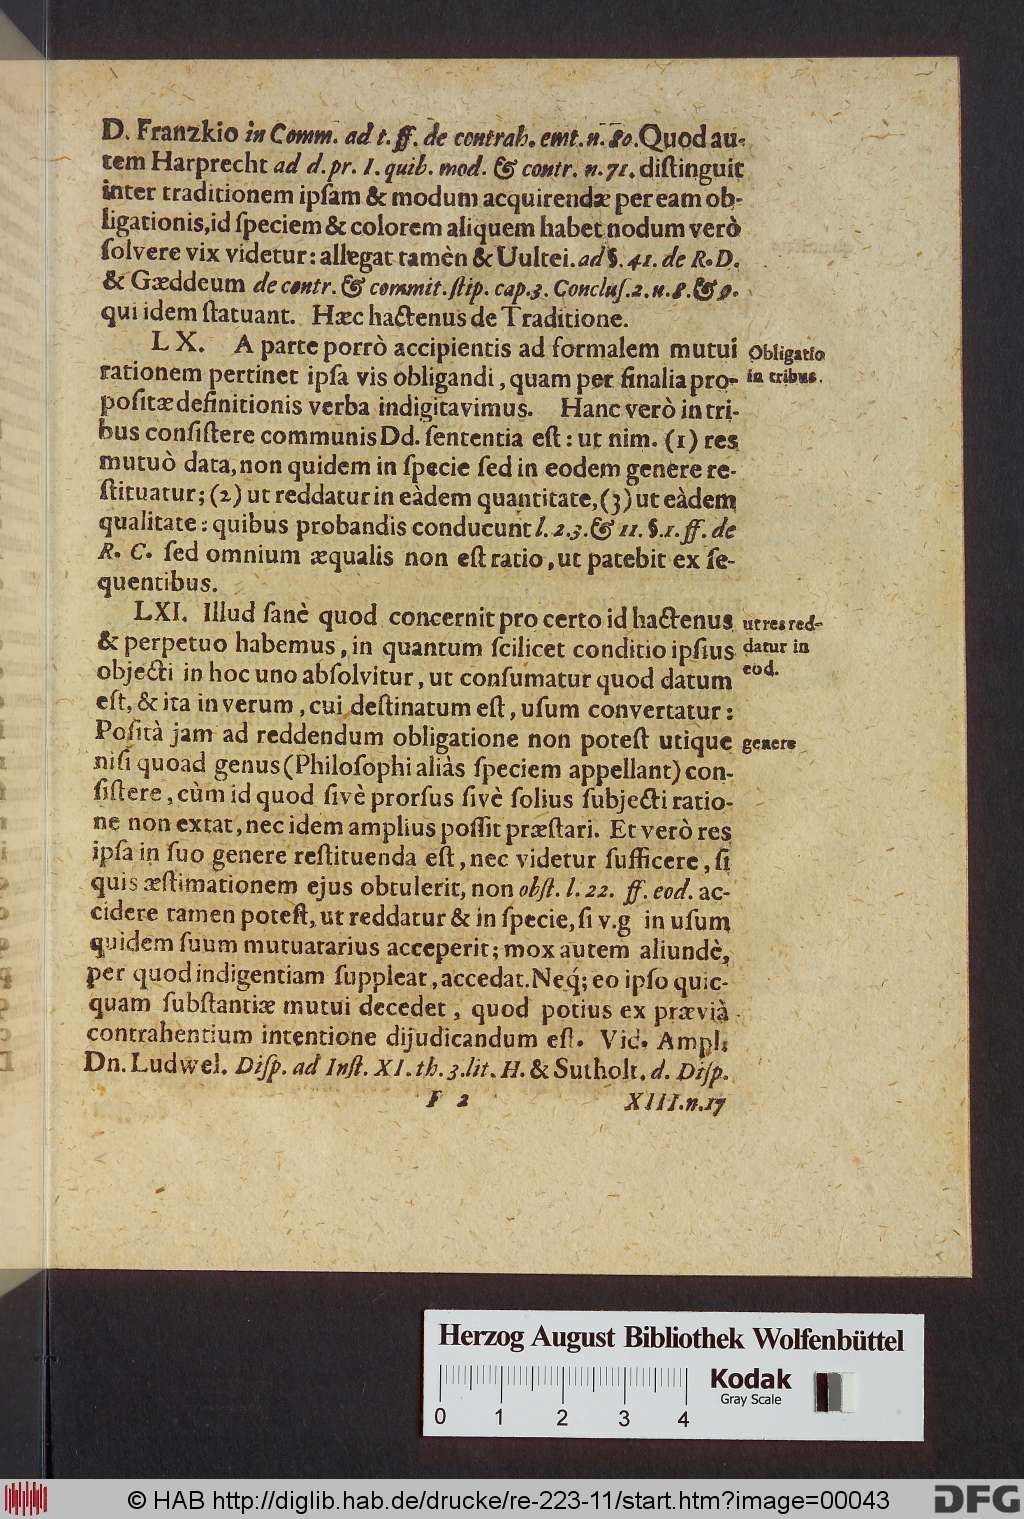 D. Franzkio in Comm. ad t. ff. de contrah. emt. n. 80. Quod au-
tem Harprecht ad d. pr. I. quib. mod. & contr. n. 71. diſtinguit
inter traditionem ipſam & modum acquirendæ per eam ob-
ligationis, id ſpeciem & colorem aliquem habet nodum verò
ſolvere vix videtur: allegat tamèn & Uultei. ad §. 41. de R. D.
& Gæddeum de contr. & commit. ſtip. cap. 3. Concluſ. 2. n. 8. & 9.
qui idem ſtatuant. Hæc hactenus de Traditione.
LX. A parte porrò accipientis ad formalem mutui
rationem pertinet ipſa vis obligandi, quam per finalia pro-
poſitæ definitionis verba indigitavimus. Hanc verò in tri-
bus conſiſtere communis Dd. ſententia eſt: ut nim. (1) res
mutuò data, non quidem in ſpecie ſed in eodem genere re-
ſtituatur; (2) ut reddatur in eàdem quantitate, (3) ut eàdem
qualitate: quibus probandis conducunt l. 2. 3. & 11. §. 1. ff. de
R. C. ſed omnium æqualis non eſt ratio, ut patebit ex ſe-
quentibus.
Obligatio
in tribus.
LXI. Illud ſanè quod concernit pro certo id hactenus
& perpetuo habemus, in quantum ſcilicet conditio ipſius
objecti in hoc uno abſolvitur, ut conſumatur quod datum
eſt, & ita in verum, cui deſtinatum eſt, uſum convertatur:
Poſità jam ad reddendum obligatione non poteſt utique
niſi quoad genus (Philoſophi aliàs ſpeciem appellant) con-
ſiſtere, cùm id quod ſivè prorſus ſivè ſolius ſubjecti ratio-
ne non extat, nec idem amplius poſſit præſtari. Et verò res
ipſa in ſuo genere reſtituenda eſt, nec videtur ſufficere, ſi
quis æſtimationem ejus obtulerit, non obſt. l. 22. ff. eod. ac-
cidere tamen poteſt, ut reddatur & in ſpecie, ſi v.g in uſum
quidem ſuum mutuatarius acceperit; mox autem aliundè,
per quod indigentiam ſuppleat, accedat. Neq́; eo ipſo quic-
quam ſubſtantiæ mutui decedet, quod potius ex prævià
contrahentium intentione dijudicandum eſt. Vid. Ampl.
Dn. Ludwel. Diſp. ad Inſt. XI. th. 3. lit. H. & Sutholt. d. Diſp.
ut res red-
datur in
eod.
genere
F 2
XIII. n. 17
Herzog August Bibliothek Wolfenbüttel
0 1 2 3 4
Kodak
Gray Scale
© HAB http://diglib.hab.de/drucke/re-223-11/start.htm?image=00043
DFG